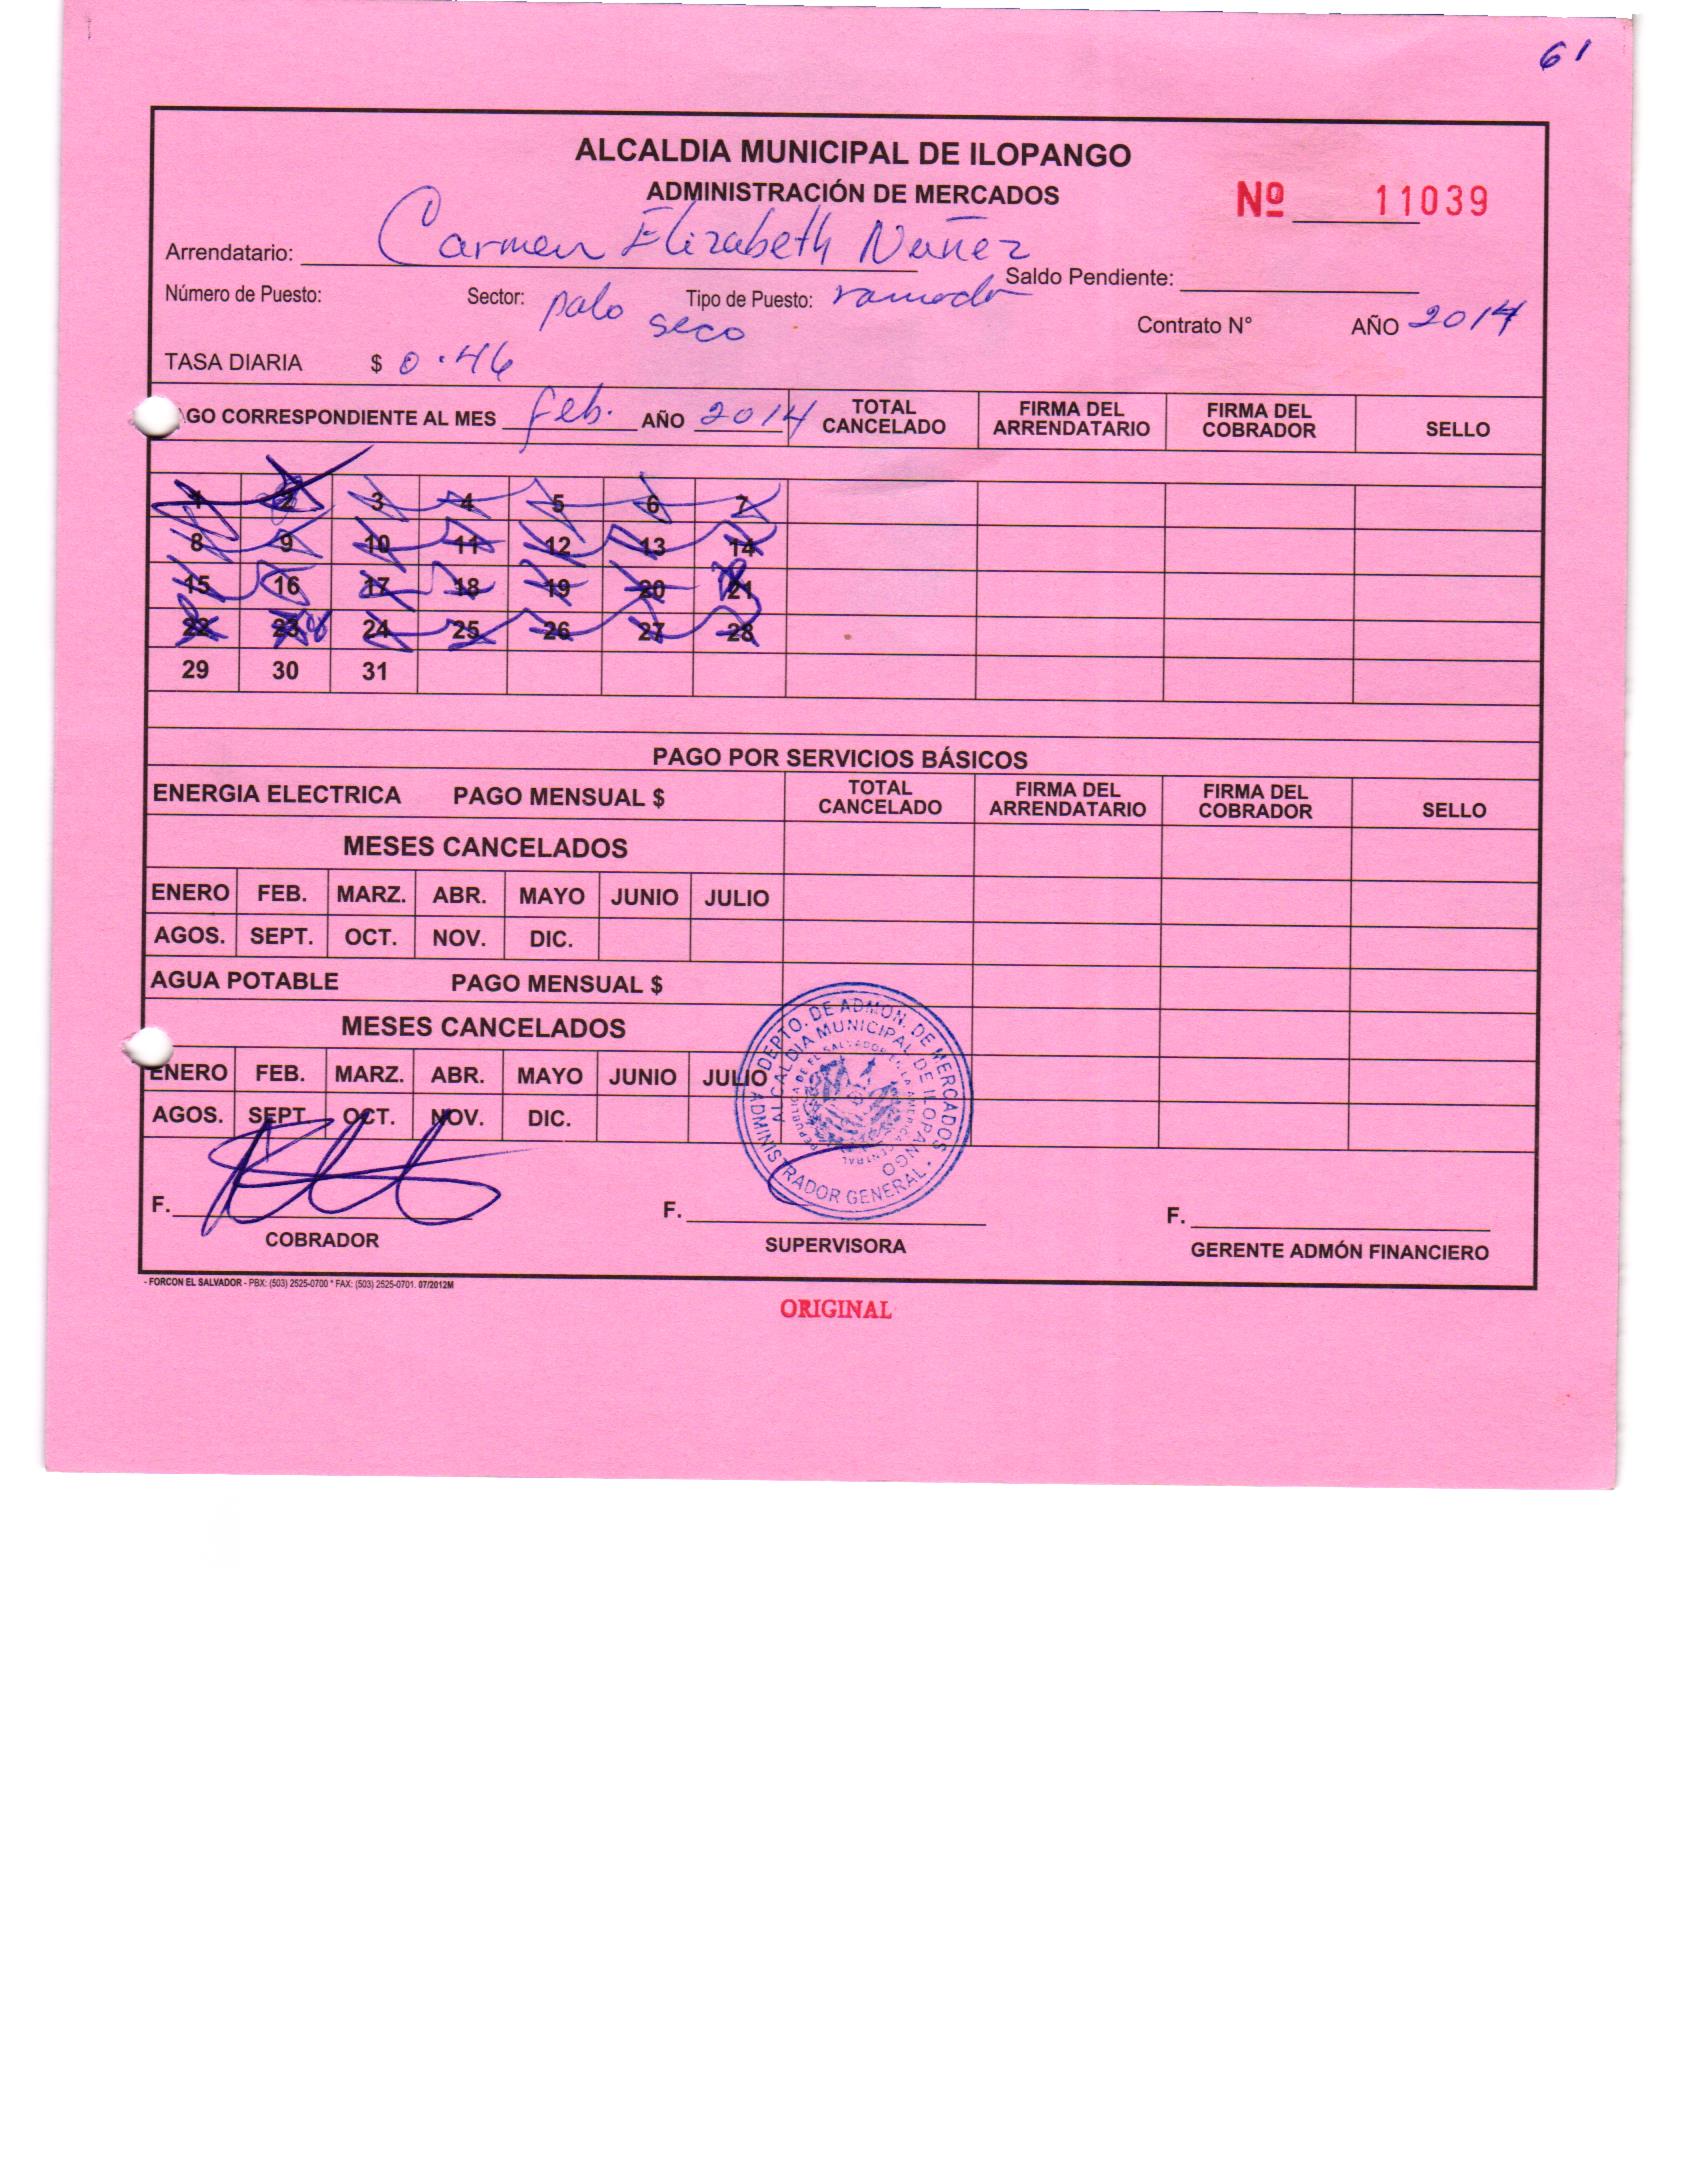 61
ALCALDIA MUNICIPAL DE ILOPANGO
ADMINISTRACIÓN DE MERCADOS
Nº 11039
Arrendatario: Carmen Elizabeth Nuñez
Saldo Pendiente:
Número de Puesto: Sector: palo seco Tipo de Puesto: ramada
Contrato N° AÑO 2014
TASA DIARIA $ 0.46
AGO CORRESPONDIENTE AL MES feb. AÑO 2014 TOTAL CANCELADO FIRMA DEL ARRENDATARIO FIRMA DEL COBRADOR SELLO
1 2 3 4 5 6 7
8 9 10 11 12 13 14
15 16 17 18 19 20 21
22 23 24 25 26 27 28
29 30 31
PAGO POR SERVICIOS BÁSICOS
ENERGIA ELECTRICA PAGO MENSUAL $ TOTAL CANCELADO FIRMA DEL ARRENDATARIO FIRMA DEL COBRADOR SELLO
MESES CANCELADOS
ENERO FEB. MARZ. ABR. MAYO JUNIO JULIO
AGOS. SEPT. OCT. NOV. DIC.
AGUA POTABLE PAGO MENSUAL $
MESES CANCELADOS
ENERO FEB. MARZ. ABR. MAYO JUNIO JULIO
AGOS. SEPT. OCT. NOV. DIC.
DEPTO. DE ADMON. DE MERCADOS
ALCALDIA MUNICIPAL DE ILOPANGO
REPUBLICA DE EL SALVADOR EN LA AMERICA CENTRAL
ADMINISTRADOR GENERAL
F. F. F.
COBRADOR SUPERVISORA GERENTE ADMÓN FINANCIERO
- FORCON EL SALVADOR - PBX: (503) 2525-0700 * FAX: (503) 2525-0701. 07/2012M
ORIGINAL